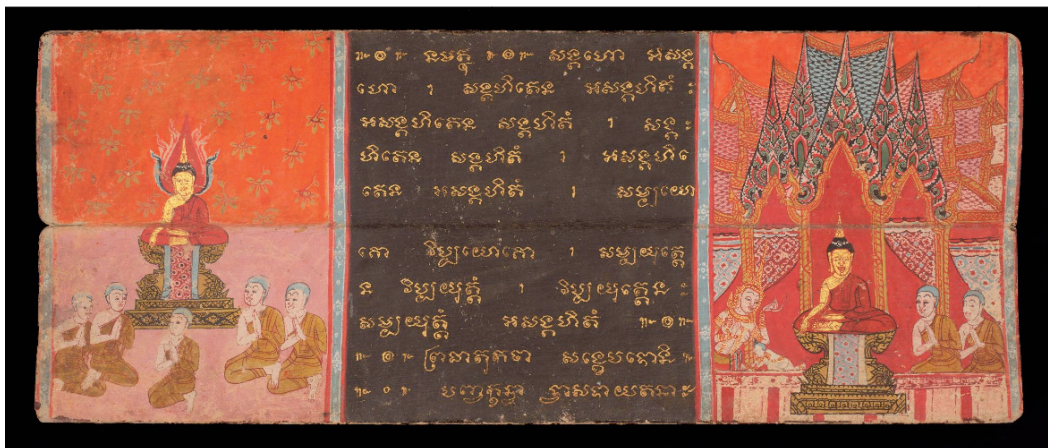 នមត្ថុ សង្គហោ អសង្គ
ហោ ។ សង្គហិតេន អសង្គហិតំ
អសង្គហិតេន សង្គហិតំ ។ សង្គ
ហិតេន សង្គហិតំ ។ អសង្គហិ
តេន អសង្គហិតំ ។ សម្បយោ
គោ វិប្បយោគោ ។ សម្បយុត្តេ
ន វិប្បយុត្តំ ។ វិប្បយុត្តេន
សម្បយុត្តំ អសង្គហិតំ
ព្រធាតុកថា